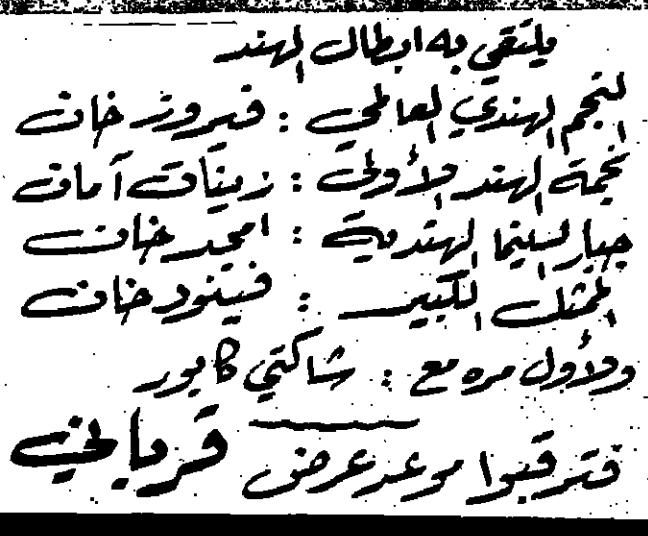 يلتقي به ابطال الهند
النجم الهندي العالمي : فيروز خان
نجمة الهند الأولى : زينات آمان
جبار السينما الهندية : امجد خان
الممثل الكبير : فينود خان
ولأول مره مع : شاكتي كابور
فترقبوا موعد عرض قرباني